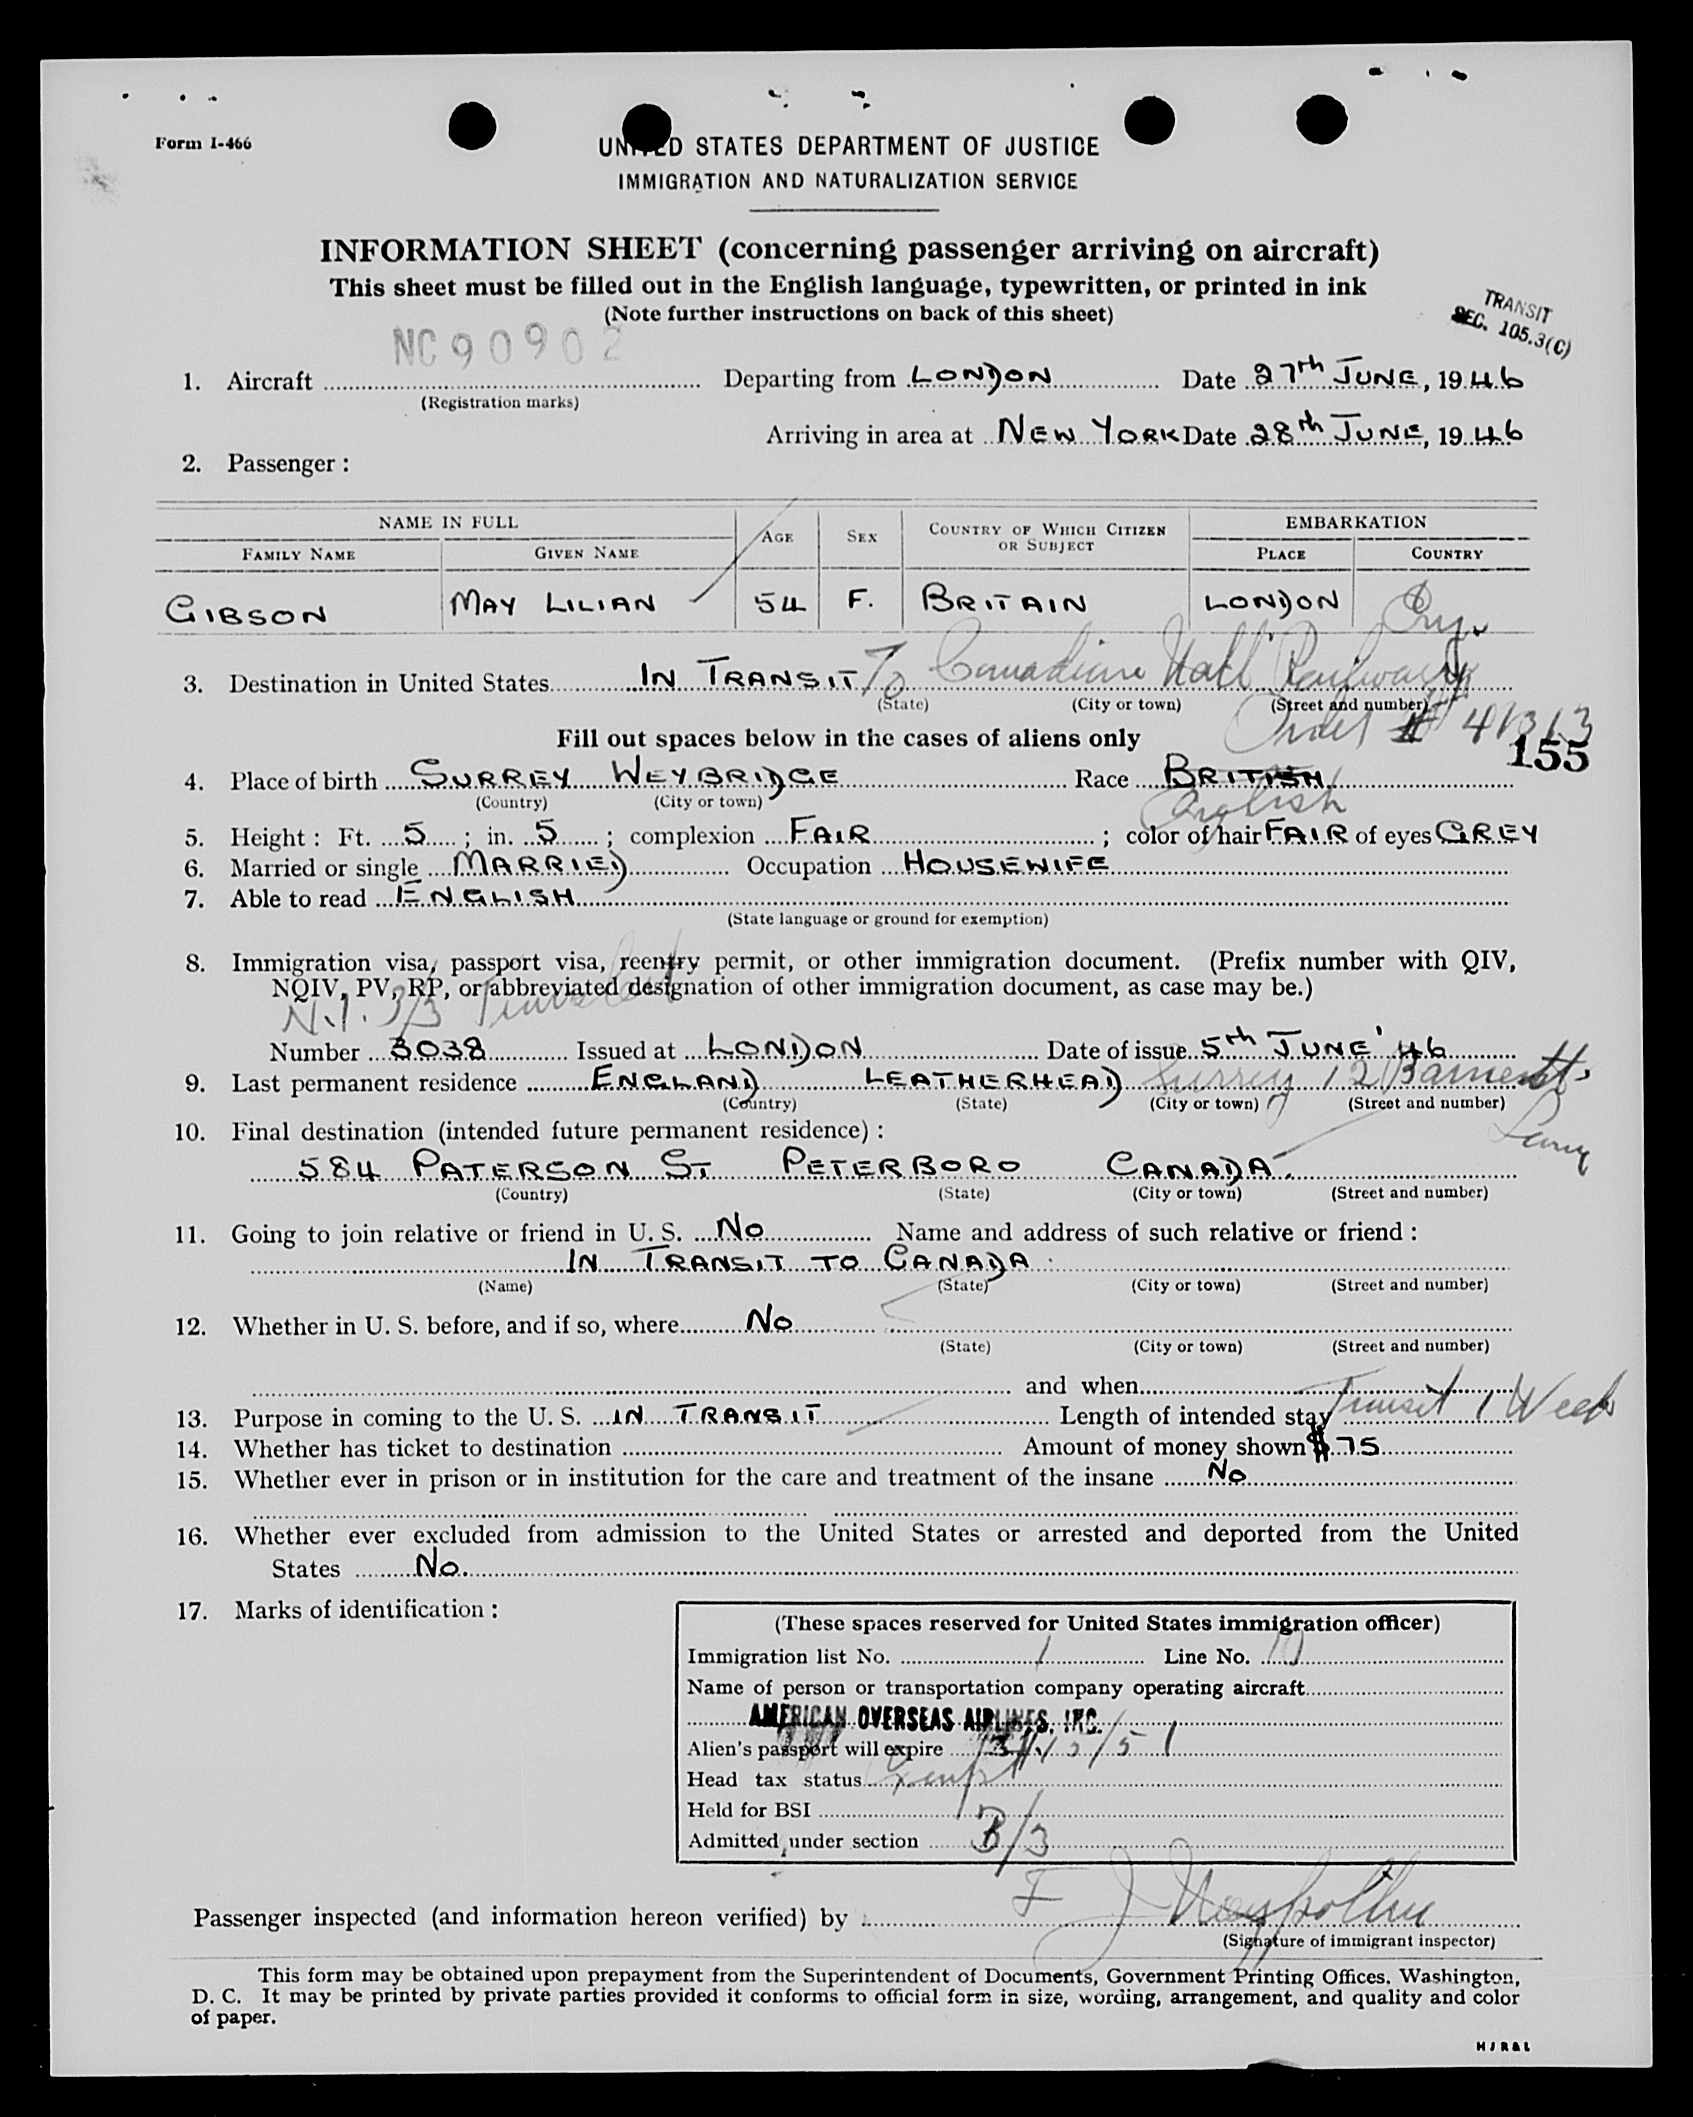 Form I-466
UNITED STATES DEPARTMENT OF JUSTICE
IMMIGRATION AND NATURALIZATION SERVICE
INFORMATION SHEET (concerning passenger arriving on aircraft)
This sheet must be filled out in the English language, typewritten, or printed in ink
(Note further instructions on back of this sheet)
TRANSIT
SEC. 105.3(C)
NC 90902
1. Aircraft Departing from LONDON Date 27th JUNE, 1946
(Registration marks)
Arriving in area at NEW YORK Date 28th JUNE, 1946
2. Passenger:
NAME IN FULL AGE SEX COUNTRY OF WHICH CITIZEN OR SUBJECT EMBARKATION
FAMILY NAME GIVEN NAME PLACE COUNTRY
GIBSON MAY LILIAN 54 F. BRITAIN LONDON Eng.
3. Destination in United States IN TRANSIT To Canadian Natl Railways
(State) (City or town) (Street and number)
Order # 41313
Fill out spaces below in the cases of aliens only
155
4. Place of birth SURREY WEYBRIDGE Race BRITISH
(Country) (City or town) English
5. Height: Ft. 5; in. 5; complexion FAIR; color of hair FAIR of eyes GREY
6. Married or single MARRIED Occupation HOUSEWIFE
7. Able to read ENGLISH
(State language or ground for exemption)
8. Immigration visa, passport visa, reentry permit, or other immigration document. (Prefix number with QIV,
NQIV, PV, RP, or abbreviated designation of other immigration document, as case may be.)
N.I. 3/3
Number 3038 Issued at LONDON Date of issue 5th JUNE '46
9. Last permanent residence ENGLAND LEATHERHEAD Surrey 12
(Country) (State) (City or town) (Street and number)
10. Final destination (intended future permanent residence):
584 PATERSON ST PETERBORO CANADA.
(Country) (State) (City or town) (Street and number)
11. Going to join relative or friend in U. S. NO Name and address of such relative or friend:
IN TRANSIT TO CANADA
(Name) (State) (City or town) (Street and number)
12. Whether in U. S. before, and if so, where NO
(State) (City or town) (Street and number)
and when
13. Purpose in coming to the U. S. IN TRANSIT Length of intended stay Transit 1 Week
14. Whether has ticket to destination Amount of money shown $75
15. Whether ever in prison or in institution for the care and treatment of the insane NO
16. Whether ever excluded from admission to the United States or arrested and deported from the United
States NO.
17. Marks of identification:
(These spaces reserved for United States immigration officer)
Immigration list No. 1 Line No. 10
Name of person or transportation company operating aircraft
AMERICAN OVERSEAS AIRLINES, INC.
Alien's passport will expire
Head tax status Exempt
Held for BSI
Admitted under section 3/3
Passenger inspected (and information hereon verified) by F J
(Signature of immigrant inspector)
This form may be obtained upon prepayment from the Superintendent of Documents, Government Printing Offices, Washington,
D. C. It may be printed by private parties provided it conforms to official form in size, wording, arrangement, and quality and color
of paper.
HJR&L